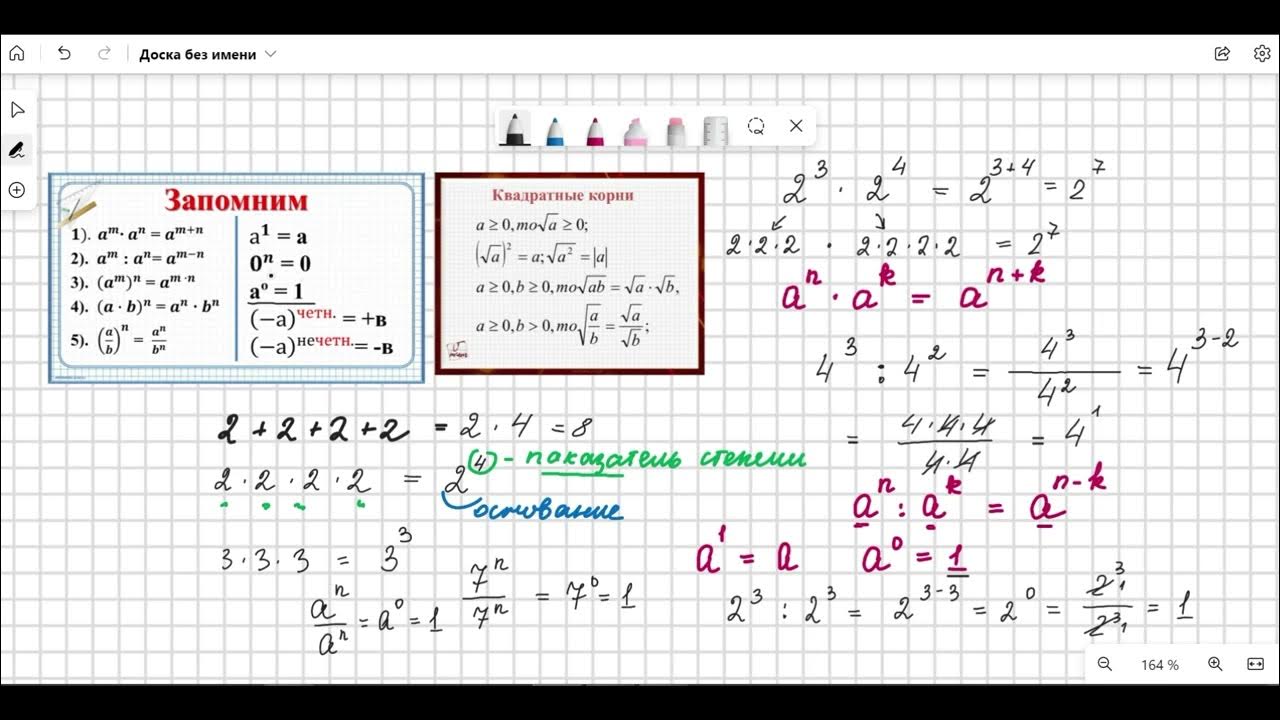 Доска без имени
Запомним
1). aᵐ· aⁿ = aᵐ⁺ⁿ
2). aᵐ : aⁿ= aᵐ⁻ⁿ
3). (aᵐ)ⁿ = aᵐ·ⁿ
4). (a · b)ⁿ = aⁿ · bⁿ
5). (a/b)ⁿ = aⁿ/bⁿ
a¹ = a
0ⁿ = 0
a⁰ = 1
(−a)^четн. = +в
(−a)^нечетн. = -в
Квадратные корни
a ≥ 0, то √a ≥ 0;
(√a)² = a; √a² = |a|
a ≥ 0, b ≥ 0, то √ab = √a · √b,
a ≥ 0, b > 0, то √(a/b) = √a/√b;
2³ · 2⁴ = 2³⁺⁴ = 2⁷
2·2·2 · 2·2·2·2 = 2⁷
aⁿ · aᵏ = aⁿ⁺ᵏ
4³ : 4² = 4³/4² = 4³⁻²
= 4·4·4/4·4 = 4¹
aⁿ : aᵏ = aⁿ⁻ᵏ
a¹ = a a⁰ = 1
2³ : 2³ = 2³⁻³ = 2⁰ = 2³₁/2³₁ = 1
2 + 2 + 2 + 2 = 2 · 4 = 8
2 · 2 · 2 · 2 = 2⁴ - показатель степени
основание
3 · 3 · 3 = 3³
aⁿ/aⁿ = a⁰ = 1 7ⁿ/7ⁿ = 7⁰ = 1
164 %